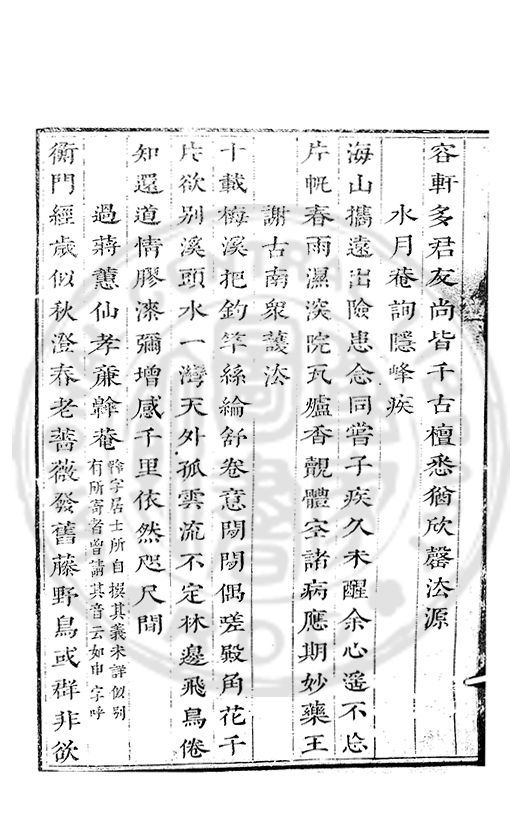 容軒多君友尚皆千古檀悉猶欣罄法源
水月菴詢隱峰疾
海山攜遠出險患念同嘗子疾久未醒余心遙不忘
片帆春雨濕深院瓦爐香覿體空諸病應期妙藥王
謝古南衆護法
十載梅溪把釣竿絲綸舒卷意閒閒偶嗟殿角花千
片欲别溪頭水一灣天外孤雲流不定林邊飛鳥倦
知還道情膠漆彌增感千里依然咫尺間
過蔣蕙仙孝廉菴
字居士所自撰其義未詳似别
有所寄者曾請其音云如申字呼
衡門經歲似秋澄春老薔薇發舊藤野鳥或群非欲